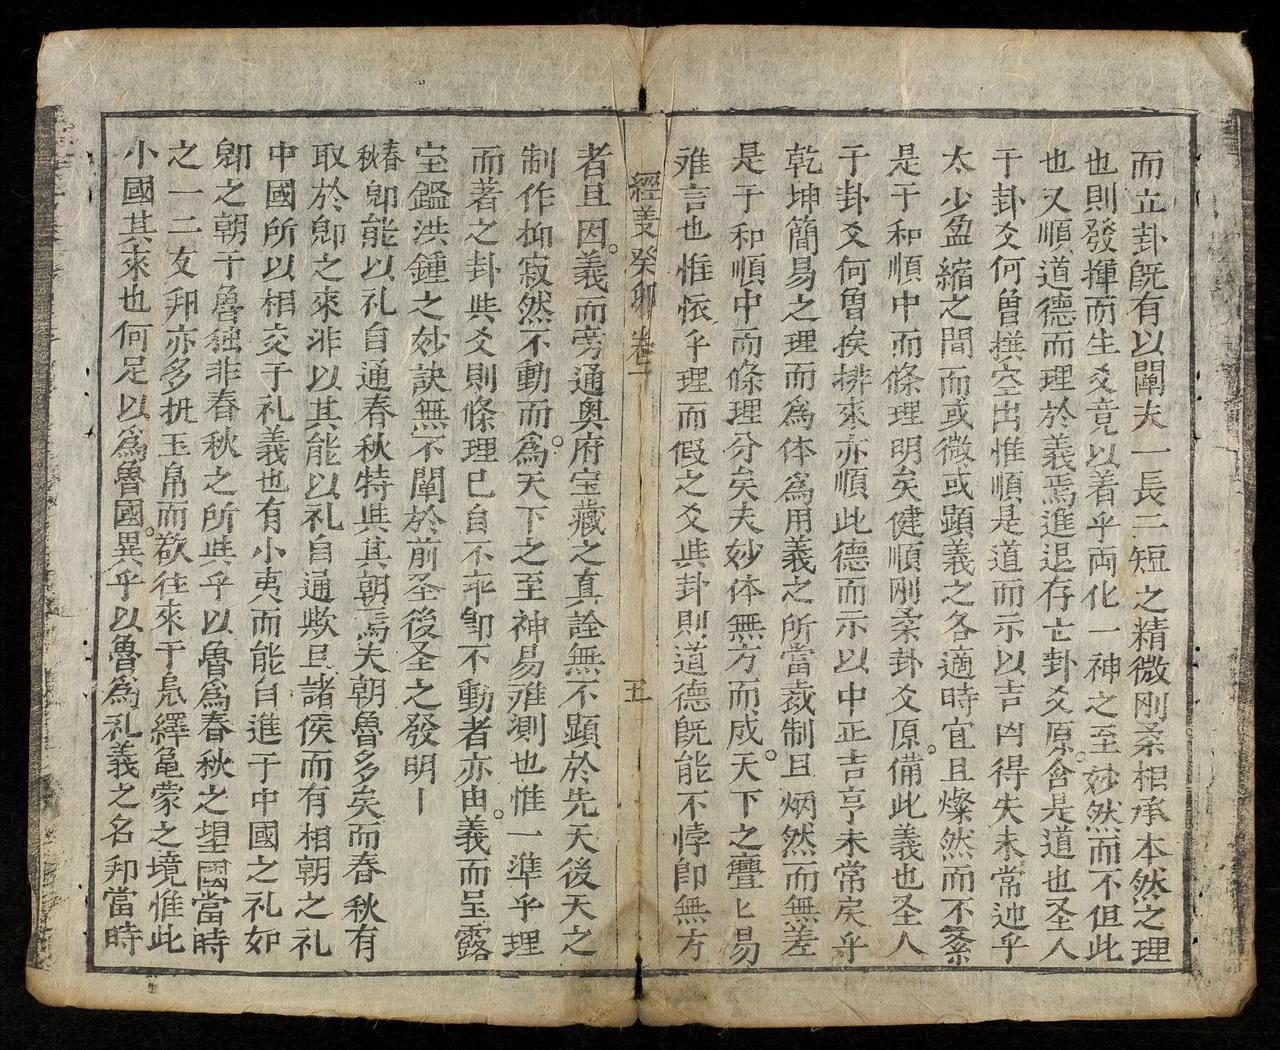 而立卦既有以闡夫一長二短之精微刚柔相承本然之理
也則發揮而生爻竟以着乎両化一神之至妙然而不但此
也又順道德而理於義焉進退存亡卦爻原含是道也圣人
于卦爻何曾撰空出惟順是道而示以吉凶得失未常迆乎
太少盈縮之間而或微或顕義之各適時宜且燦然而不紊
是于和順中而條理明矣健順刚柔卦爻原備此義也圣人
于卦爻何曾挨排來亦順此德而示以中正吉亨未常戾乎
乾坤簡易之理而爲体爲用義之所當裁制且炳然而無差
是于和順中而條理分矣夫妙体無方而成天下之亹〻易
难言也惟依乎理而假之爻与卦則道德既能不悖即無方
經義 癸卯 卷二 五
者且因義而旁通奥府宝藏之真詮無不顕於先天後天之
制作抑寂然不動而爲天下之至神易难測也惟一準乎理
而著之卦与爻則條理已自不乖卽不動者亦由義而呈露
宝鑑洪鍾之妙訣無不闡於前圣後圣之發明
春秋卽能以礼自通春秋特与其朝焉夫朝魯多矣而春秋有
取於郳之來非以其能以礼自通歟且諸侯而有相朝之礼
中國所以相交于礼義也有小夷而能自進于中國之礼如
郳之朝于魯独非春秋之所与乎以魯爲春秋之望國當時
之一二友邦亦多抚玉帛而欲往來于凫繹龜蒙之境惟此
小國其來也何足以爲魯國異乎以魯爲礼義之名邦當時